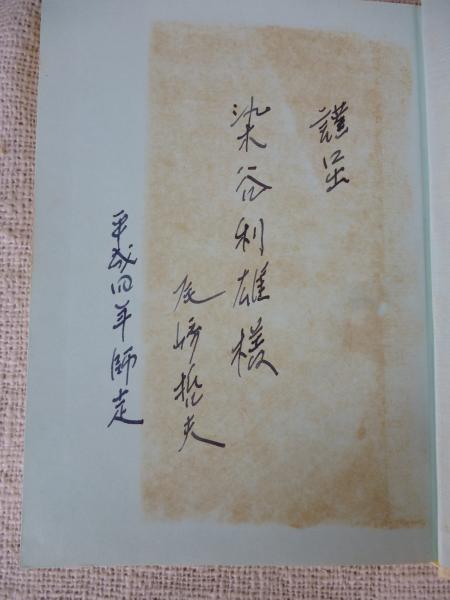 謹呈
染谷利雄様
尾崎哲夫
平成四年師走